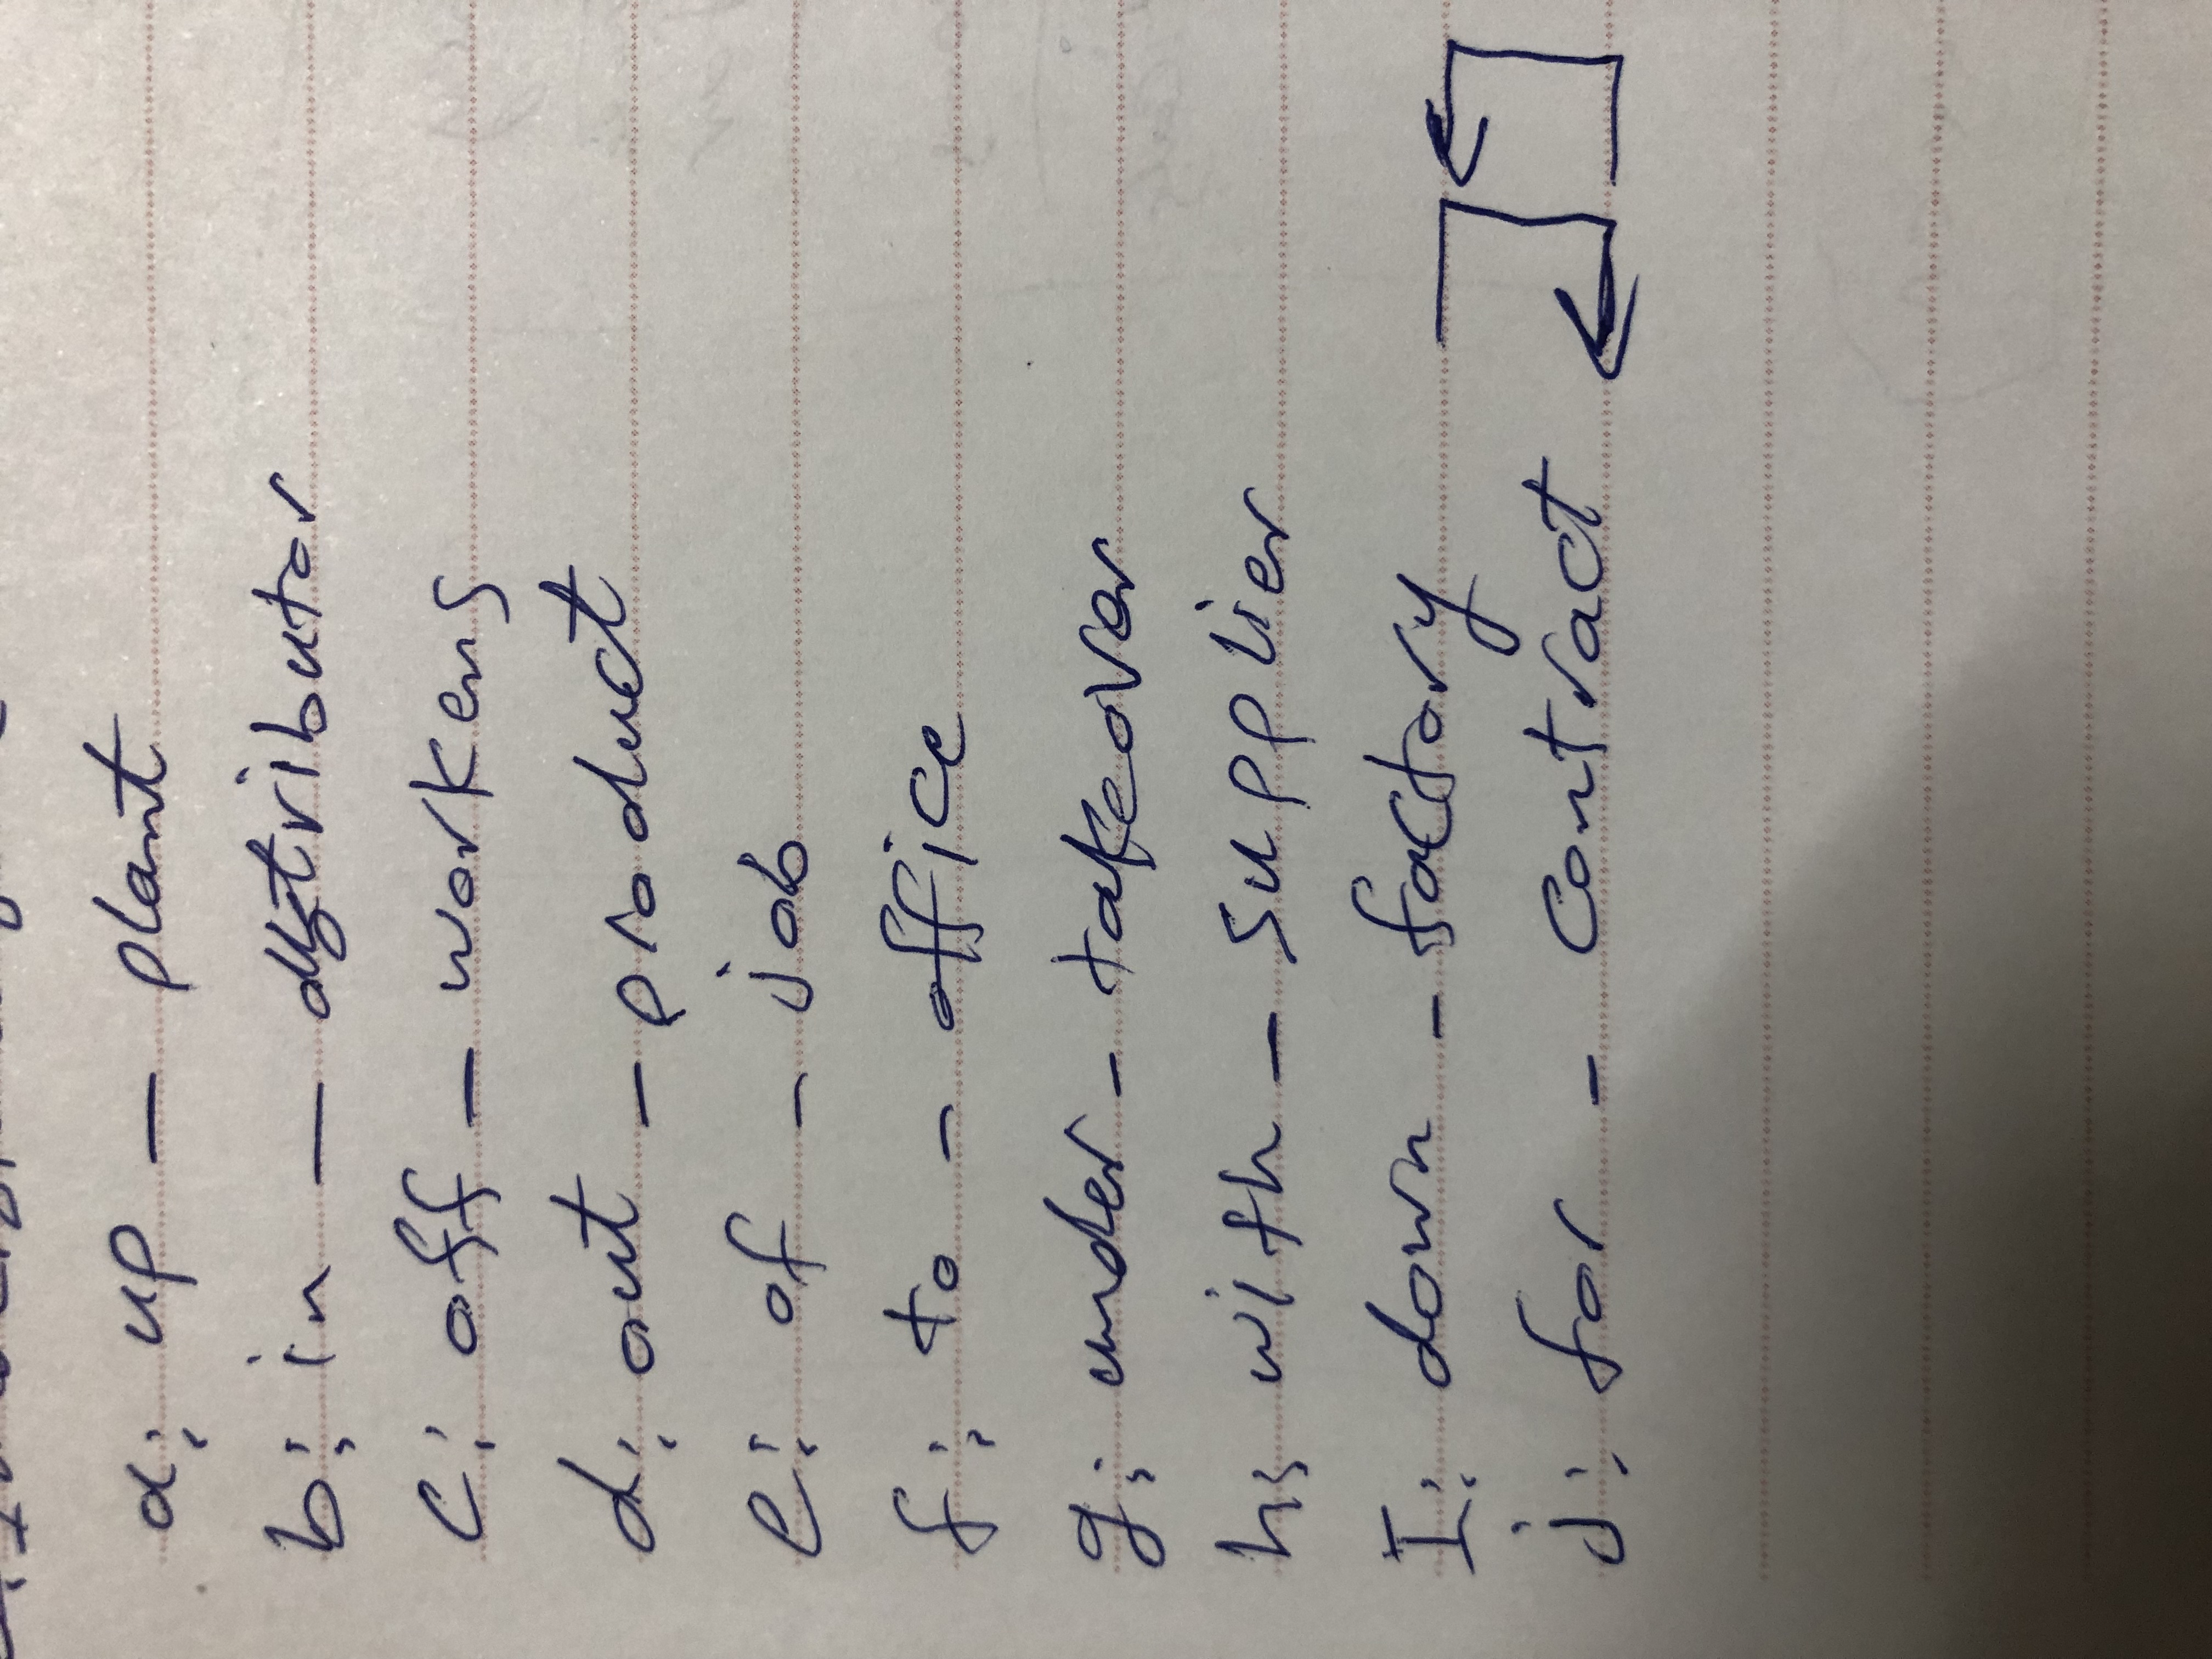 a; up — plant
b; in — dystributor
c; off — workens
d; out — product
e; of — job
f; to — office
g; under — takeovar
h; with — supplier
I; down — factory
j; for — contract